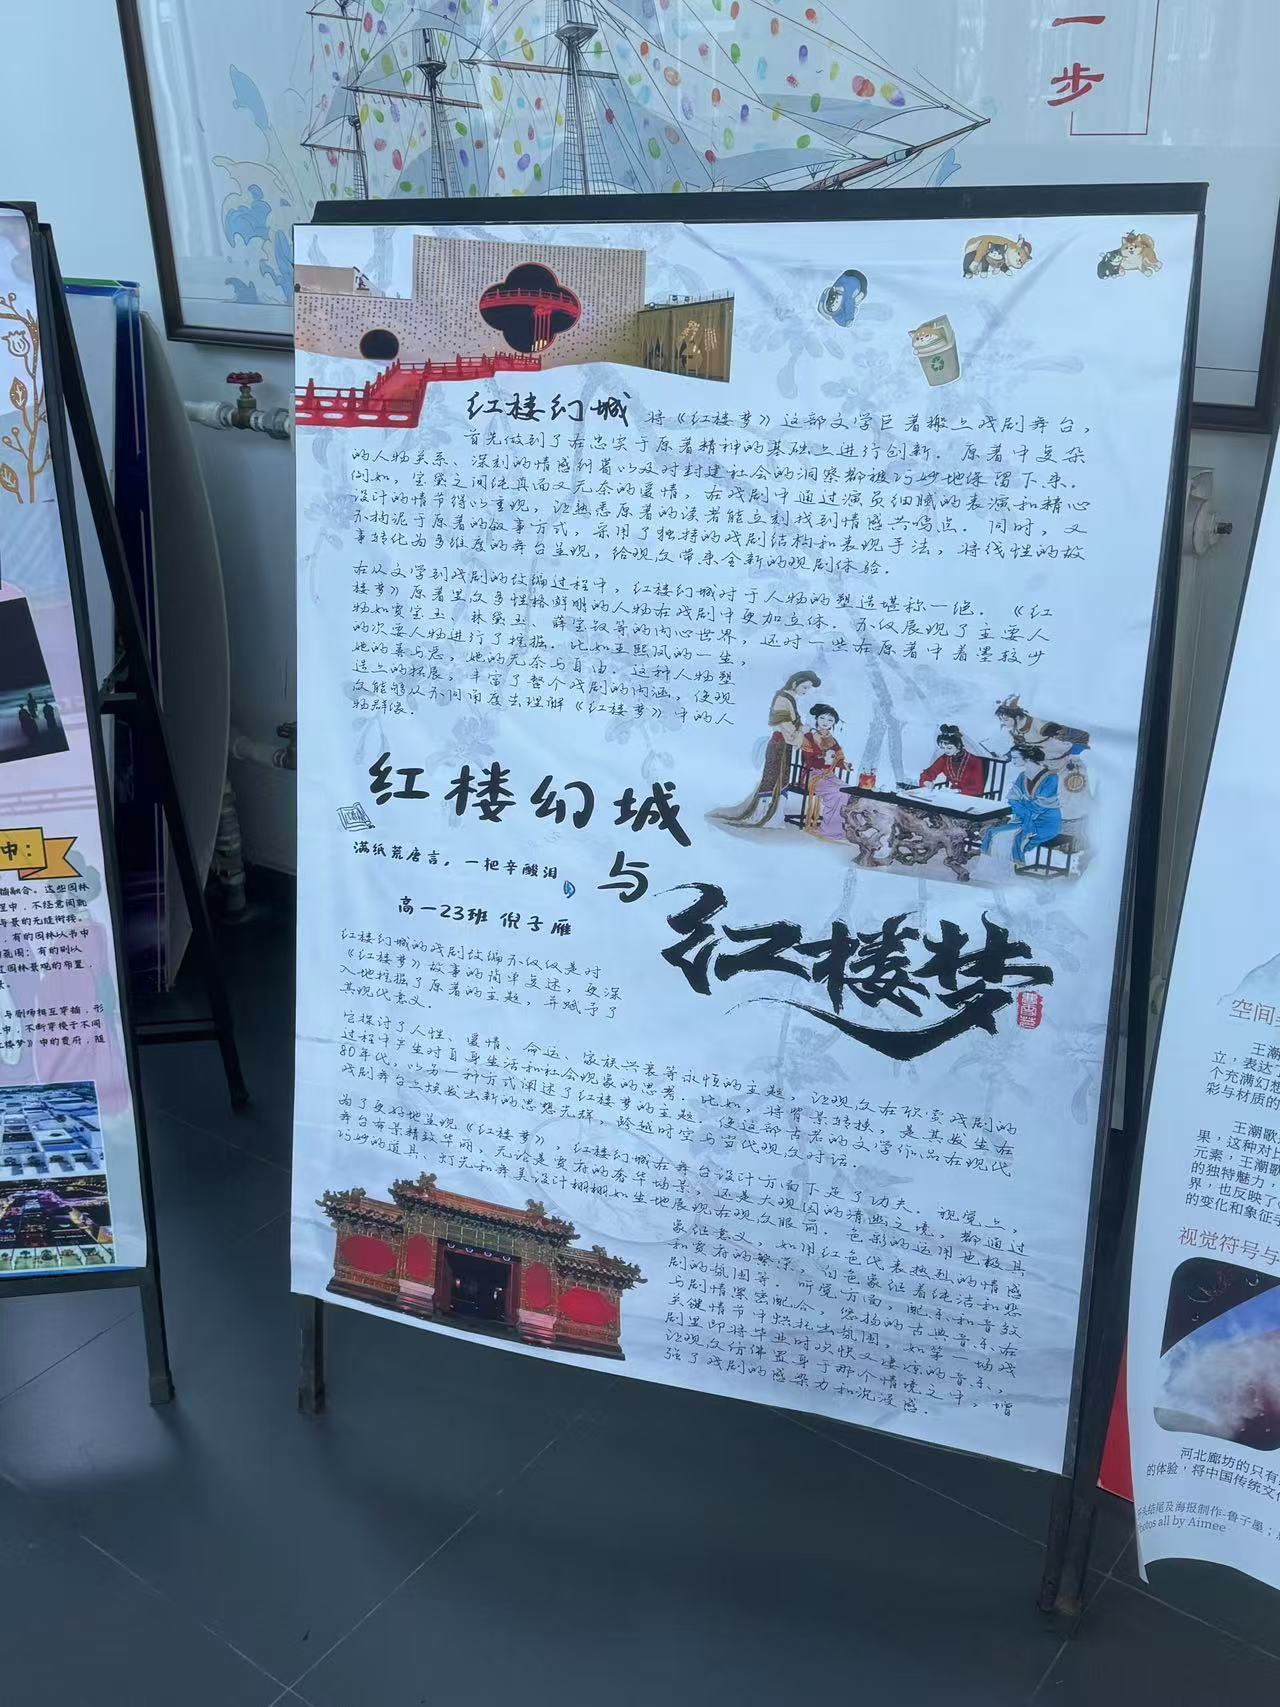 一
步
红楼幻城 将《红楼梦》这部文学巨著搬上戏剧舞台，
首先做到了在忠实于原著精神的基础上进行创新．原著中复杂
的人物关系、深刻的情感纠葛以及对封建社会的洞察都被巧妙地保留下来．
例如，宝黛之间纯真而又无奈的爱情，在戏剧中通过演员细腻的表演和精心
设计的情节得以重现，让熟悉原著的读者能立刻找到情感共鸣点．同时，又
不拘泥于原著的叙事方式，采用了独特的戏剧结构和表现手法，将线性的故
事转化为多维度的舞台呈现，给观众带来全新的观剧体验．
在从文学到戏剧的改编过程中，红楼幻城对于人物的塑造堪称一绝．《红
楼梦》原著里众多性格鲜明的人物在戏剧中更加立体．不仅展现了主要人
物如贾宝玉、林黛玉、薛宝钗等的内心世界，还对一些在原著中着墨较少
的次要人物进行了挖掘．比如王熙凤的一生，
她的善与恶，她的无奈与自由．这种人物塑
造上的拓展，丰富了整个戏剧的内涵，使观
众能够从不同角度去理解《红楼梦》中的人
物群像．
红楼幻城
与
红楼梦
满纸荒唐言，一把辛酸泪
高一23班 倪子雁
红楼幻城的戏剧改编不仅仅是对
《红楼梦》故事的简单复述，更深
入地挖掘了原著的主题，并赋予了
其现代意义．
它探讨了人性、爱情、命运、家族兴衰等永恒的主题，让观众在欣赏戏剧的
过程中产生对自身生活和社会现象的思考．比如，将背景转换，是其发生在
80年代，以另一种方式阐述了红楼梦的主题．使这部古老的文学作品在现代
戏剧舞台上焕发出新的思想光辉，跨越时空与当代观众对话．
为了更好地呈现《红楼梦》，红楼幻城在舞台设计方面下足了功夫．视觉上，
舞台布景精致华丽，无论是贾府的奢华场景，还是大观园的清幽之境，都通过
巧妙的道具、灯光和舞美设计栩栩如生地展现在观众眼前．色彩的运用也极具
象征意义，如用红色代表热烈的情感
和贾府的繁荣，白色象征着纯洁和悲
剧的氛围等．听觉方面，配乐和音效
与剧情紧密配合，悠扬的古典音乐在
关键情节中烘托出氛围，如第一场戏
剧里即将毕业时欢快又凄凉的音乐，
让观众仿佛置身于那个情境之中，增
强了戏剧的感染力和沉浸感．
中：
融合。这些园林
程中，不经意间就
与景的无缝衔接。
，有的园林以书中
的范围；有的则以
过园林景观的布置，
与剧场相互穿插，形
中，不断穿梭于不同
楼梦》中的贾府，随
空间
王潮
立，表达
个充满幻想
彩与材质的
王潮歌
果，这种对比
元素，王潮歌
的独特魅力，
界，也反映了
的变化和象征
视觉符号与
河北廊坊的只有
的体验，将中国传统文
结尾及海报制作-鲁子墨；
Photos all by Aimee